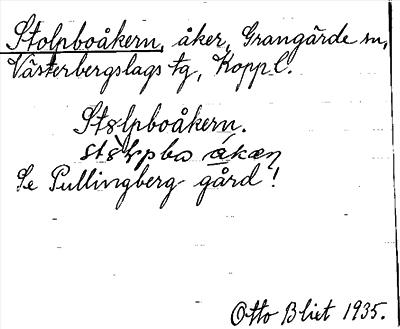 Stolpboåkern, åker, Grangärde sn,
Västerbergslags tg, Kopp l.
Stolpboåkern.
Se Pullingberg gård!
Otto Blixt 1935.